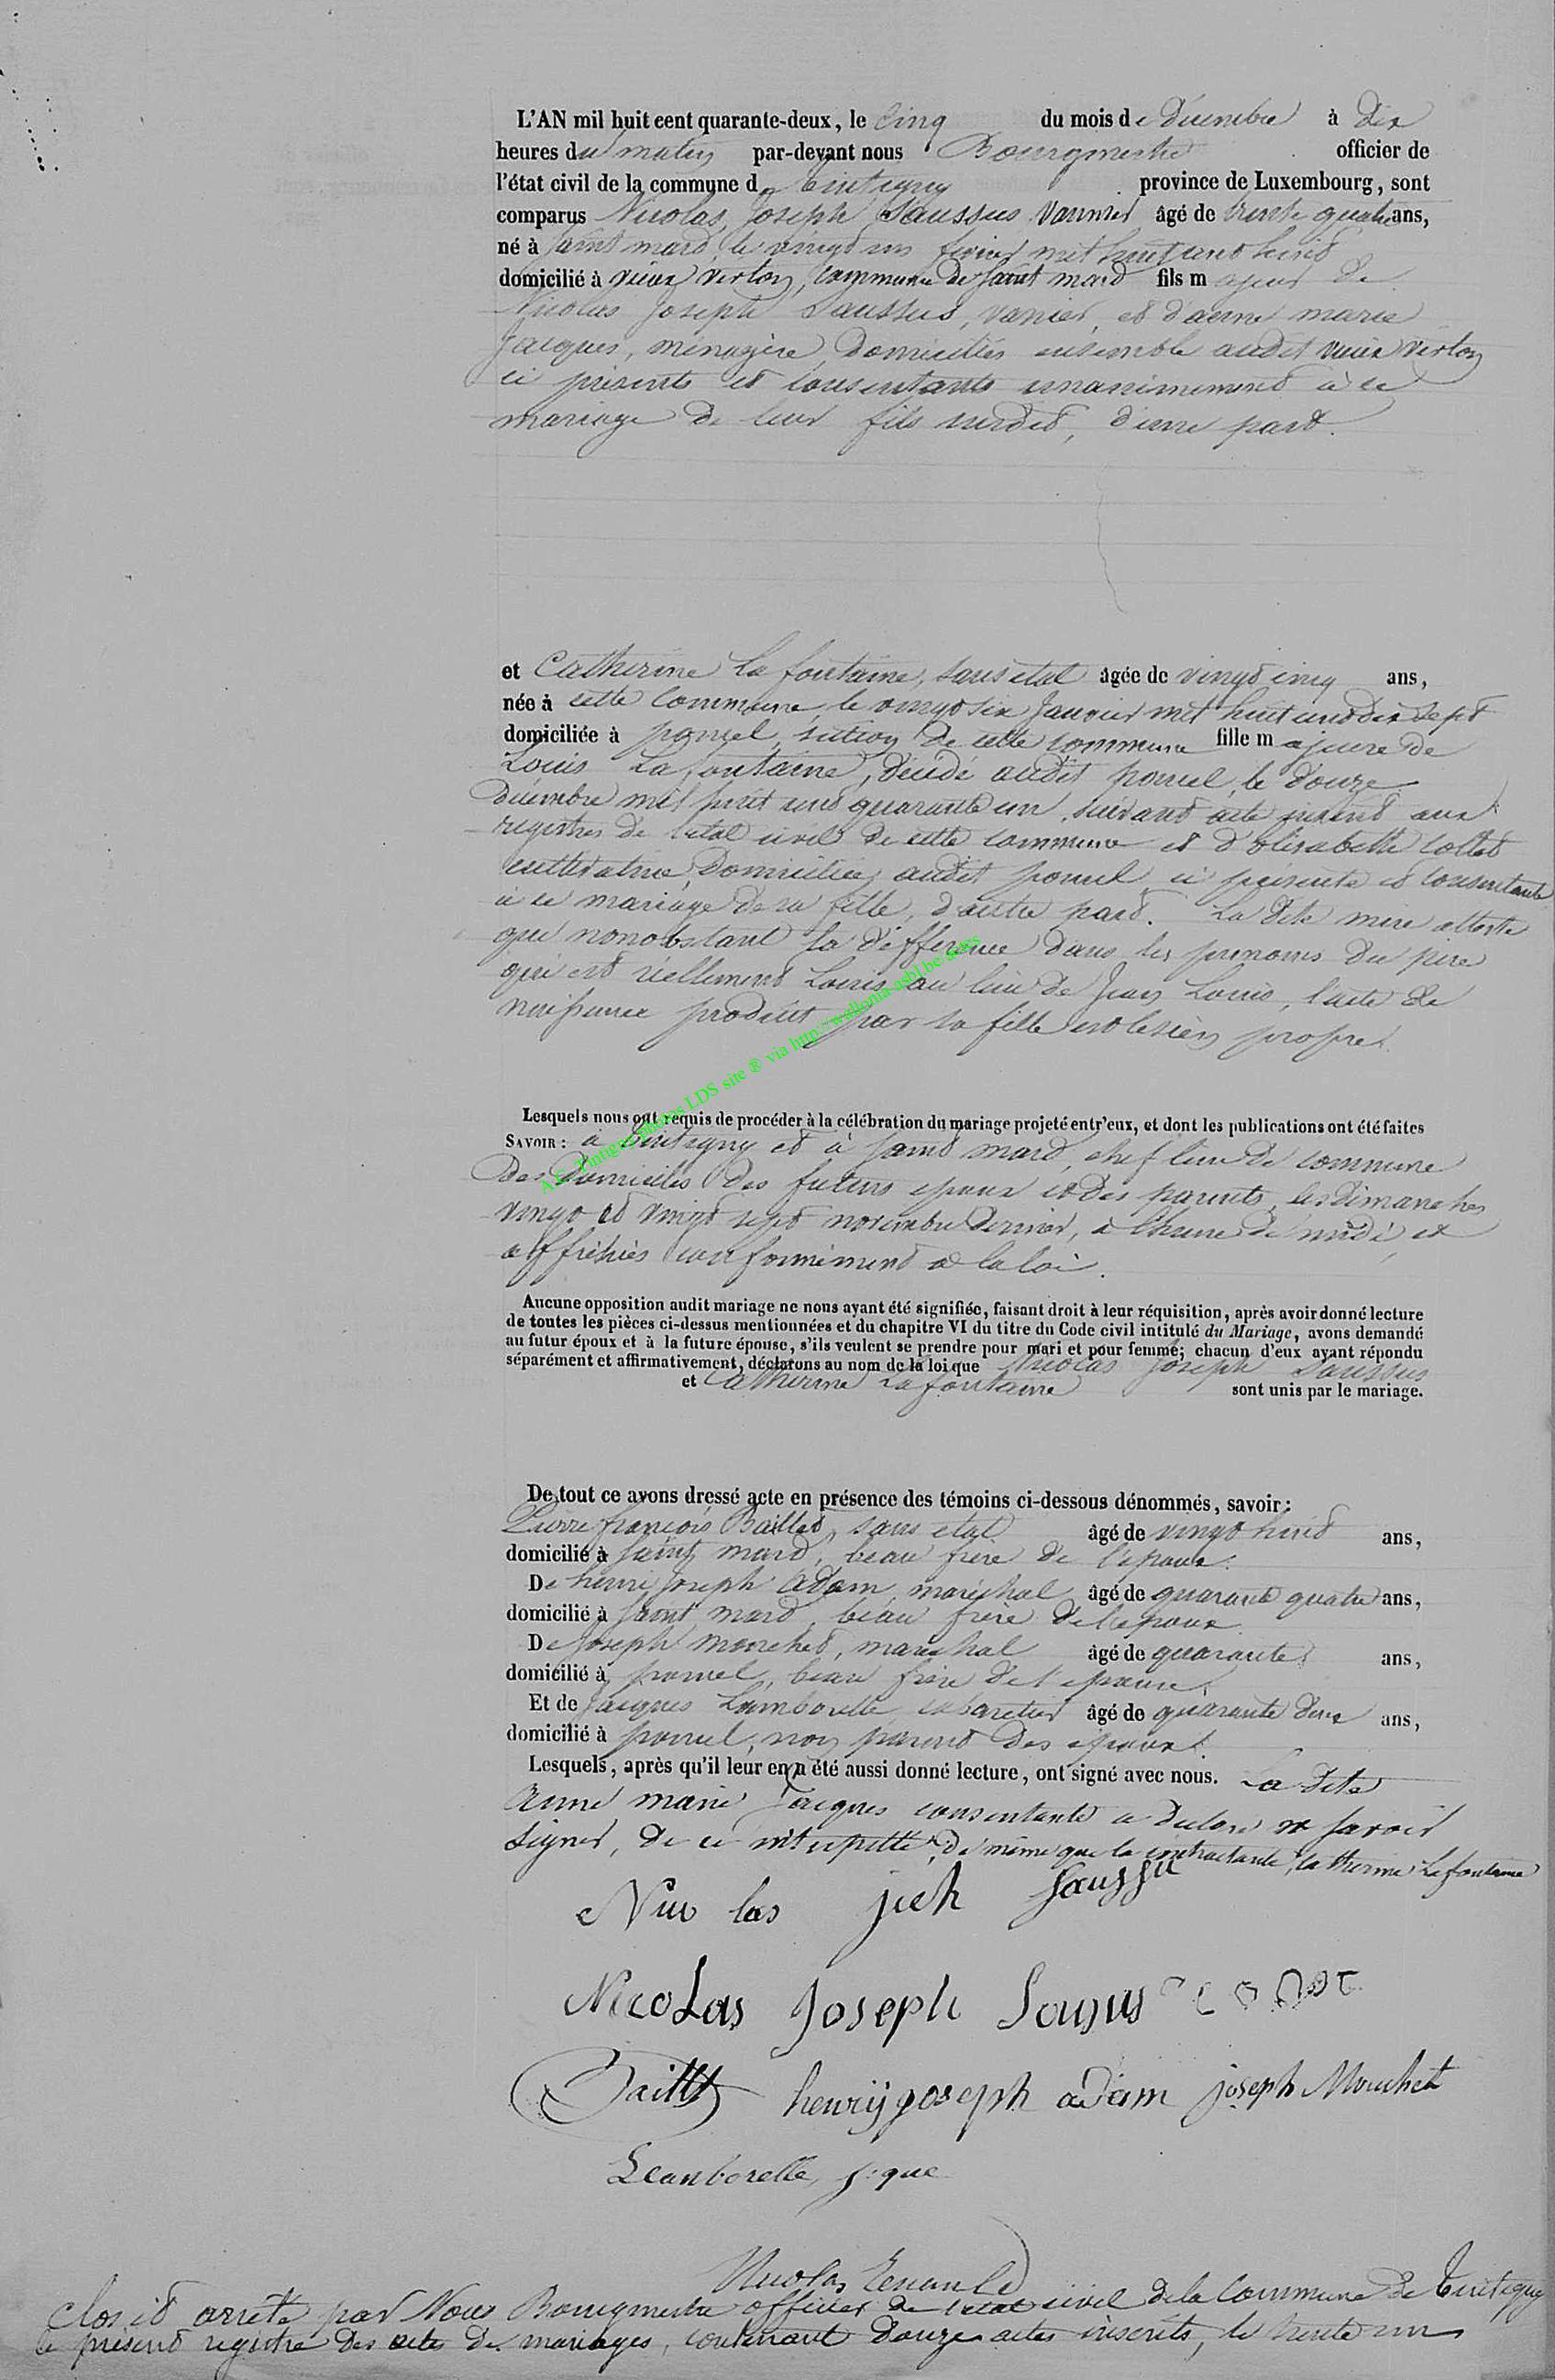 L'AN mil huit cent quarante-deux, le cinq du mois de Décembre à dix
heures du matin par-devant nous Bourgmestre officier de
l'état civil de la commune de Tintigny province de Luxembourg, sont
comparus Nicolas Joseph Saussus vannier âgé de trente quatre ans,
né à Saint mard, le vingt un fevrier mil huit cent huit
domicilié à vieux virton, commune de Saint mard fils majeur de
Nicolas Joseph Saussus, vanier, et d'anne marie
Jacques, ménagère, Domiciliés ensemble audit vieux virton
ci présents et consentants unanimement à ce
mariage de leur fils susdit, d'une part.
et Catherine La fontaine, sans etat âgée de vingt cinq ans,
née à cette commune, le vingt six Janvier mil huit cent dix sept
domiciliée à poncel, section de cette commune fille majeure de
Louis La fontaine, décédé audit poncel, le douze
Décembre mil huit cent quarante un, suivant acte inscrit aux
registres de l'etat civil de cette commune et d'élisabeth Collet
cultivatrice, Domiciliée audit poncel, ci présente et consentante
à ce mariage de sa fille, d'autre part. La dite mère atteste
que nonobstant la différence dans les prenoms du père
qui est réellement Louis au lieu de Jean Louis, l'acte de
naissance produit par sa fille est le sien propre.
Lesquels nous ont requis de procéder à la célébration du mariage projeté entr'eux, et dont les publications ont été faites
SAVOIR : à Tintigny et à Saint mard, chef lieu de commune
des Domiciles des futurs epoux et des parents, les Dimanches
vingt et vingt sept novembre dernier, à l'heure de midi, et
affichées conformément à la loi.
Aucune opposition audit mariage ne nous ayant été signifiée, faisant droit à leur réquisition, après avoir donné lecture
de toutes les pièces ci-dessus mentionnées et du chapitre VI du titre du Code civil intitulé du Mariage, avons demandé
au futur époux et à la future épouse, s'ils veulent se prendre pour mari et pour femme; chacun d'eux ayant répondu
séparément et affirmativement, déclarons au nom de la loi que Nicolas Joseph Saussus
et Catherine La fontaine sont unis par le mariage.
De tout ce avons dressé acte en présence des témoins ci-dessous dénommés, savoir :
Pierre françois Baillet, sans etat âgé de vingt huit ans,
domicilié à Saint mard, beau frère de l'epoux.
De henri Joseph Adam, maréchal âgé de quarante quatre ans,
domicilié à Saint mard, beau frère de l'epoux.
De Joseph mouchet, maréchal âgé de quarante ans,
domicilié à poncel, beau frère de l'epouse.
Et de Jacques Lamborelle, cabaretier âgé de quarante deux ans,
domicilié à poncel, non parent des epoux.
Lesquels, après qu'il leur en a été aussi donné lecture, ont signé avec nous. La dite
Anne marie Jacques consentante a declaré ne savoir
signer, de ce interpellée, de même que la contractante, Catherine La fontaine
Nicolas jseh Saussu
Nicolas Joseph Sausus
Baillet henrij joseph adam joseph Mouchet
Leanborelle
Nicolas
Clos et arrêté par Nous Bourgmestre officier de l'etat civil de la Commune de Tintigny
le présent registre des actes de mariages, contenant douze actes inscrits, le trente un